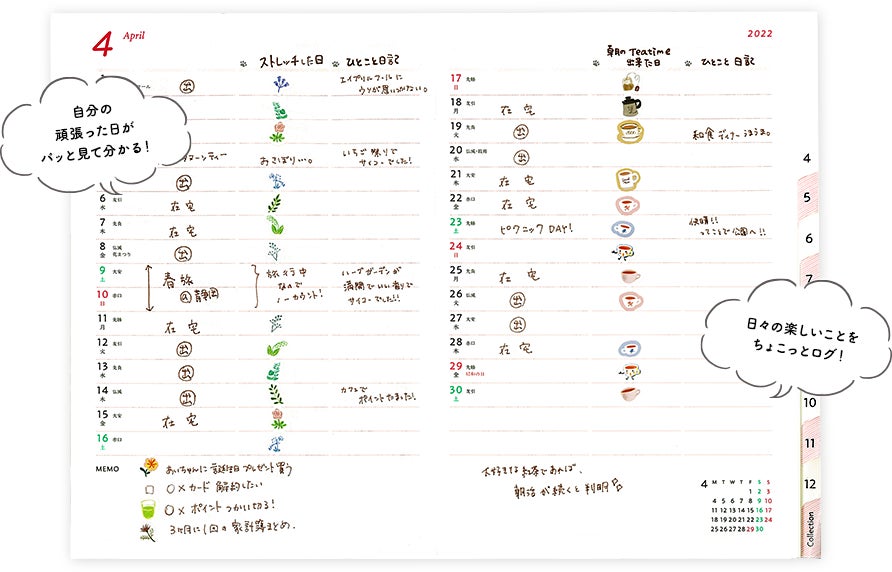 4 April
ストレッチした日
ひとこと日記
エイプリルフールに
ウソが思いつかない。
自分の
頑張った日が
パッと見て分かる！
出
おさぼり…。
いちご祭りで
サイコーでした!
出
6 水 友引
在宅
7 木 先負
在宅
8 金 仏滅 花まつり
出
9 土 大安
春旅
旅行中
なので
ノーカウント!
ハーブガーデンが
満開でいい香りで
サイコーでした!!
10 日 赤口
@静岡
11 月 先勝
在宅
12 火 友引
出
13 水 先負
出
14 木 仏滅
出
カフェで
ポイントたました!
15 金 大安
在宅
16 土 赤口
MEMO
あいちゃんに誕生日プレゼント買う
○×カード 解約したい
○×ポイントつかい切る!
3ヶ月に1回の家計簿まとめ.
2022
朝の Teatime
出来た日
ひとこと日記
17 日 先勝
18 月 友引
在宅
19 火 先負
出
和食ディナーうまうま。
20 水 仏滅・穀雨
出
21 木 大安
在宅
22 金 赤口
在宅
23 土 先勝
ピクニックDAY!
快晴!!
ってことで公園へ!!
24 日 友引
25 月 先負
在宅
26 火 仏滅
出
27 水 大安
出
28 木 赤口
在宅
29 金 先勝 昭和の日
30 土 友引
大好きな紅茶であれば、
朝活が続くと判明
4
5
6
7
日々の楽しいことを
ちょこっとログ！
10
11
12
Collection
4 M T W T F S S
1 2 3
4 5 6 7 8 9 10
11 12 13 14 15 16 17
18 19 20 21 22 23 24
25 26 27 28 29 30